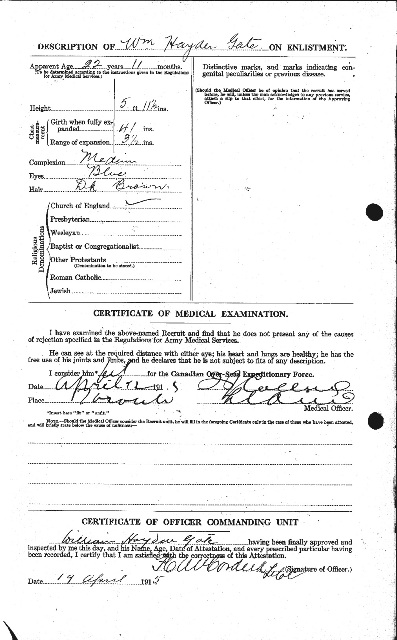 DESCRIPTION OF Wm Hayden Gate ON ENLISTMENT.
Apparent Age 22 years 11 months.
(To be determined according to the instructions given in the Regulations for Army Medical Services.)
Distinctive marks, and marks indicating congenital peculiarities or previous disease.
(Should the Medical Officer be of opinion that the recruit has served before, he will, unless the man acknowledges to any previous service, attach a slip to that effect, for the information of the Approving Officer).
Height 5 ft. 11½ ins.
Chest measurement
Girth when fully expanded 41 ins.
Range of expansion 3½ ins.
Complexion Medium
Eyes Blue
Hair Dk Brown
Religious Denominations
Church of England
Presbyterian
Wesleyan
Baptist or Congregationalist
Other Protestants
(Denomination to be stated.)
Roman Catholic
Jewish
CERTIFICATE OF MEDICAL EXAMINATION.
I have examined the above-named Recruit and find that he does not present any of the causes
of rejection specified in the Regulations for Army Medical Services.
He can see at the required distance with either eye; his heart and lungs are healthy; he has the
free use of his joints and limbs, and he declares that he is not subject to fits of any description.
I consider him* fit for the Canadian Over-Seas Expeditionary Force.
Date April 12 1915
Place Toronto
Medical Officer.
*Insert here "fit" or "unfit."
NOTE.—Should the Medical Officer consider the Recruit unfit, he will fill in the foregoing Certificate only in the case of those who have been attested,
and will briefly state below the cause of unfitness:—
CERTIFICATE OF OFFICER COMMANDING UNIT
William Hayden Gate having been finally approved and
inspected by me this day, and his Name, Age, Date of Attestation, and every prescribed particular having
been recorded, I certify that I am satisfied with the correctness of this Attestation.
(Signature of Officer)
Date 19 April 1915